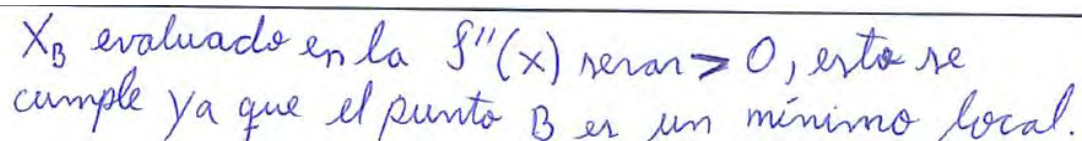 X_B evaluado en la f''(x) seran > 0, esto se
cumple ya que el punto B es un mínimo local.